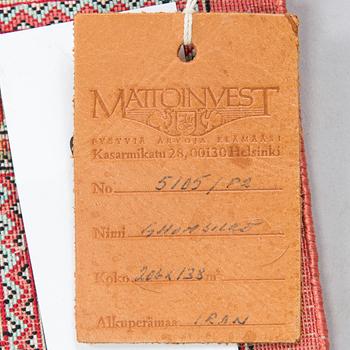 MATTOINVEST
PYSTYVIÄ ARVOJA ELÄMÄÄSI
Kasarmikatu 28, 00130 Helsinki
No 5105/82
Nimi
Koko 206x138 m²
Alkuperämaa IRAN